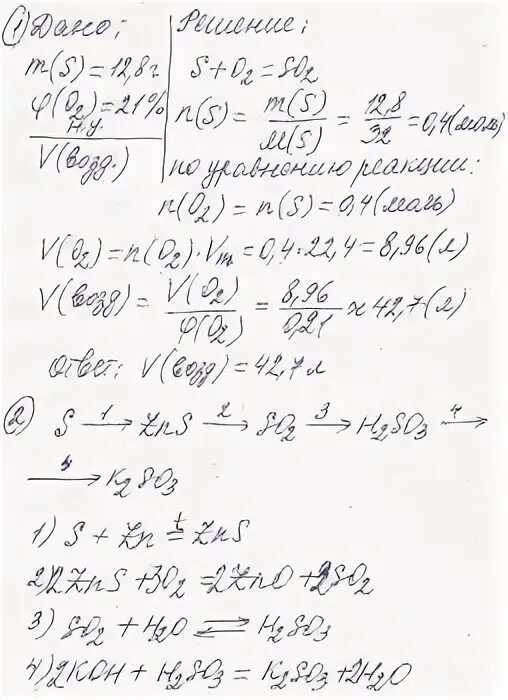 ① Дано:
m(S) = 12,8 г
φ(O₂) = 21%
н.у.
V(возд.)
Решение:
S + O₂ = SO₂
n(S) = m(S)/M(S) = 12,8/32 = 0,4 (моль)
по уравнению реакции:
n(O₂) = n(S) = 0,4 (моль)
V(O₂) = n(O₂) · Vm = 0,4 · 22,4 = 8,96 (л)
V(возд) = V(O₂)/φ(O₂) = 8,96/0,21 ≈ 42,7 (л)
Ответ: V(возд) = 42,7 л
② S —1→ ZnS —2→ SO₂ —3→ H₂SO₃ —4→
—4→ K₂SO₃
1) S + Zn =t ZnS
2) 2ZnS + 3O₂ = 2ZnO + 2SO₂
3) SO₂ + H₂O ⇄ H₂SO₃
4) 2KOH + H₂SO₃ = K₂SO₃ + 2H₂O